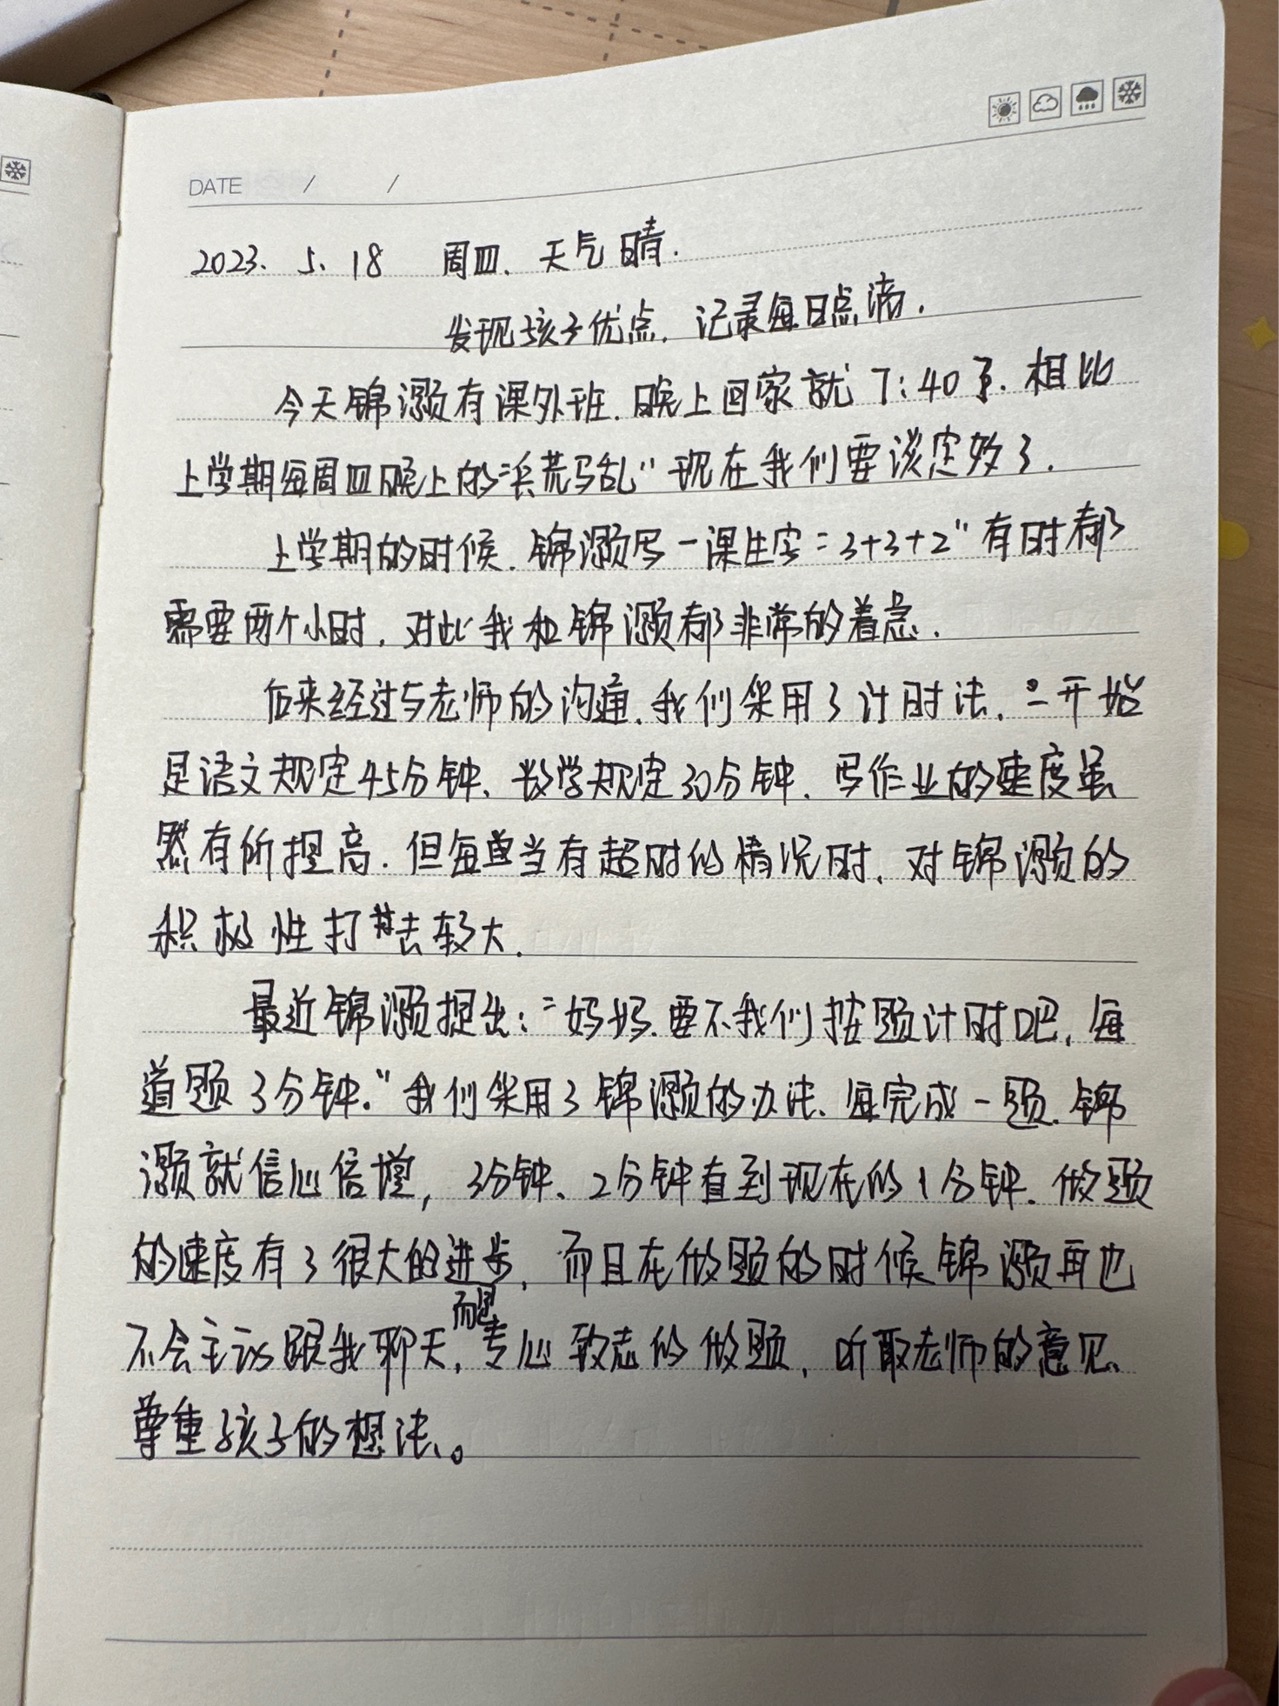 DATE / /
2023、5、18 周四、天气晴.
发现孩子优点,记录每日点滴.
今天锦灏有课外班.晚上回家就7:40了.相比
上学期每周四晚上的“兵荒马乱”现在我们要淡定多了.
上学期的时候.锦灏写一课生字“3+3+2”有时都
需要两个小时,对此我和锦灏都非常的着急.
后来经过与老师的沟通.我们采用了计时法.一开始
是语文规定45分钟、数学规定30分钟.写作业的速度虽
然有所提高.但每当有超时的情况时、对锦灏的
积极性打击较大.
最近锦灏提出:“妈妈.要不我们按题计时吧,每
道题3分钟.”我们采用了锦灏的办法、每完成一题.锦
灏就信心倍增,3分钟、2分钟直到现在的1分钟.做题
的速度有了很大的进步,而且在做题的时候锦灏再也
不会主动跟我聊天,而是专心致志的做题,听取老师的意见、
尊重孩子的想法、。